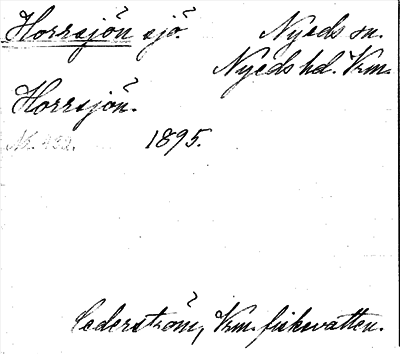 Horrsjön sjö Nyeds sn.
Nyeds hd. Vrm.
Horrsjön.
1895.
Cederström, Vrm. fiskevatten.